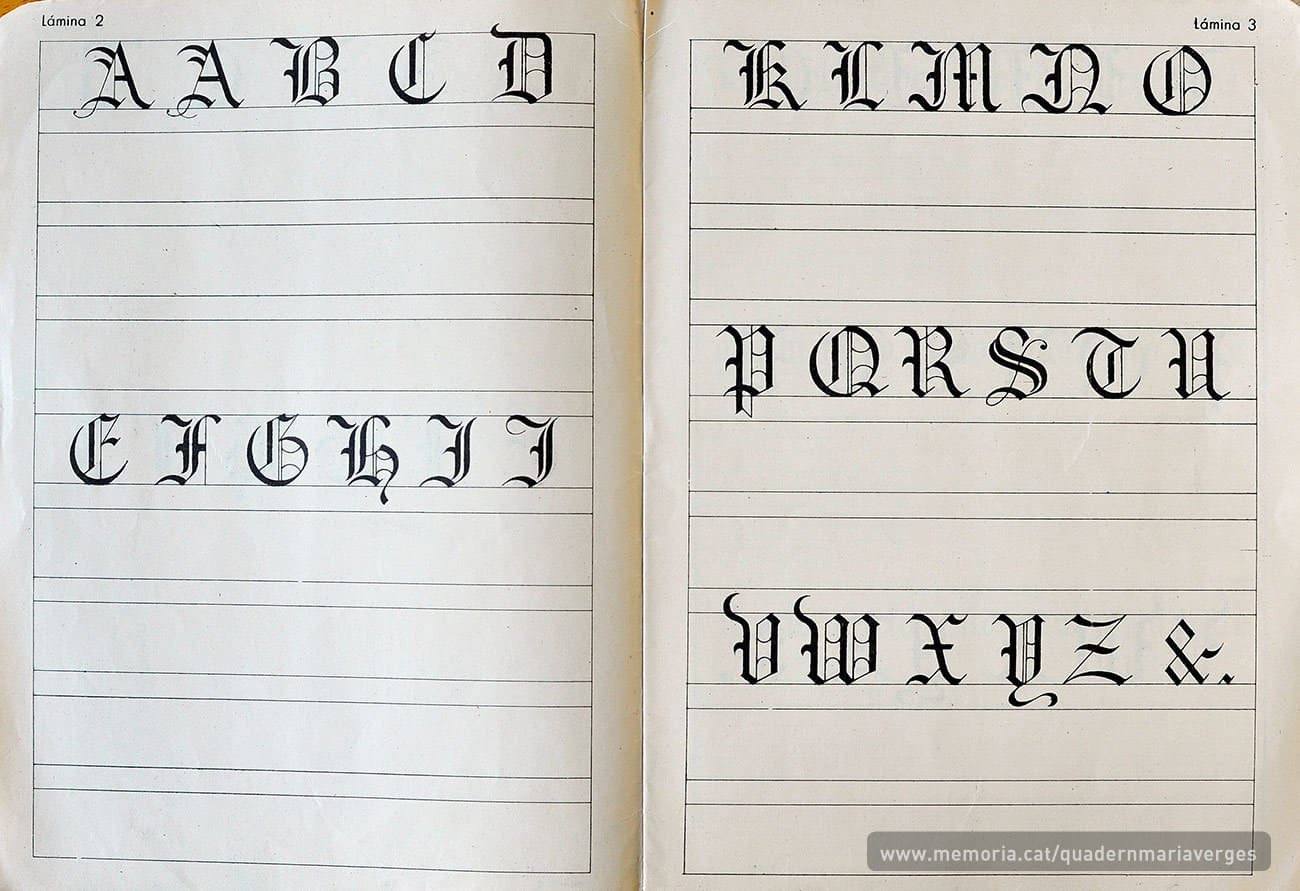 Lámina 2
A A B C D
E F G H I J
Lámina 3
K L M N O
P Q R S T U
V W X Y Z &.
www.memoria.cat/quadernmariaverges